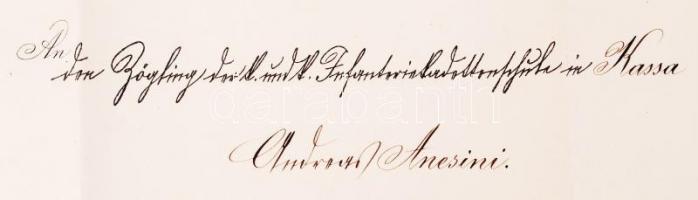 An
den Zögling der k. und k. Infanteriekadettenschule in Kassa
Andreas Anesini.
darabanth